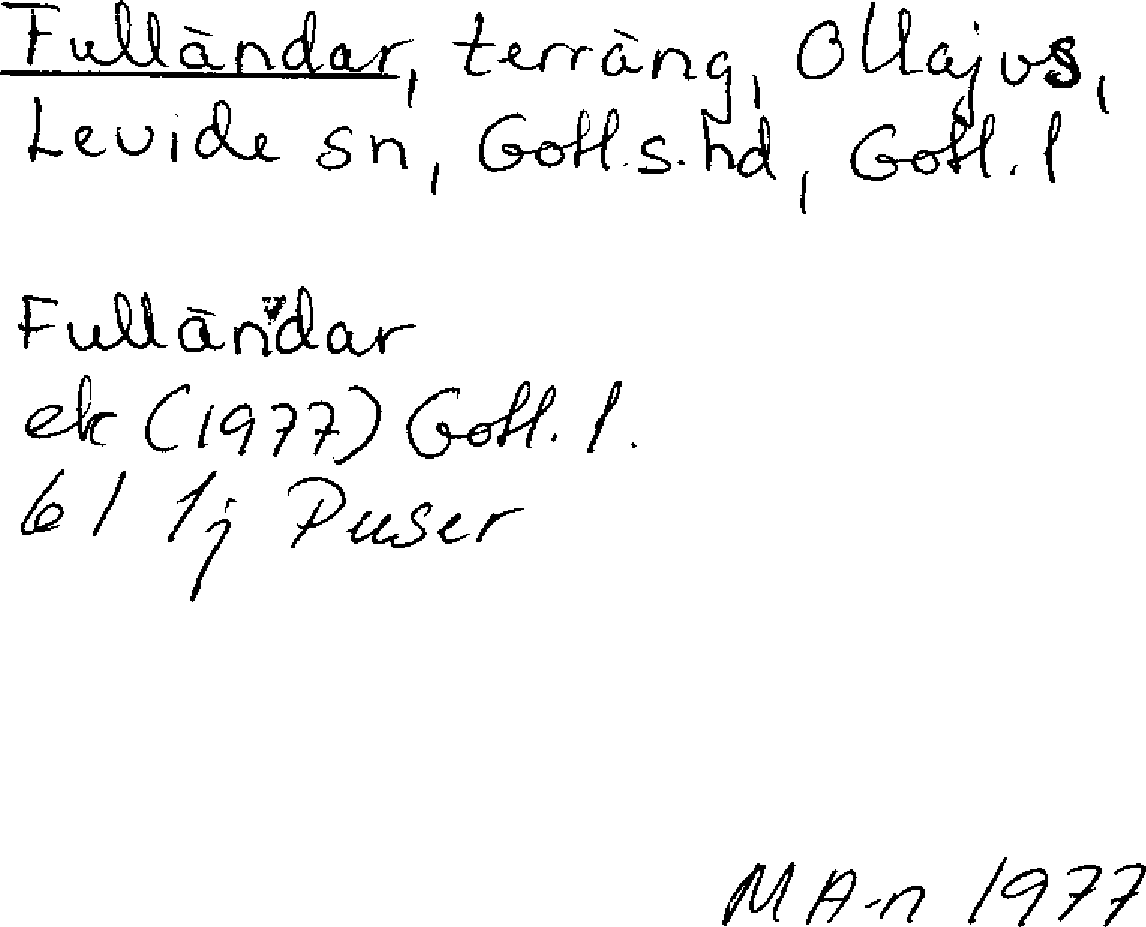 Fulländar, terräng, Ollajvs,
Levide sn, Gotl.s.hd, Gotl. l
Fulländar
ek (1977) Gotl. l.
6I 1j Puser
MA-n 1977